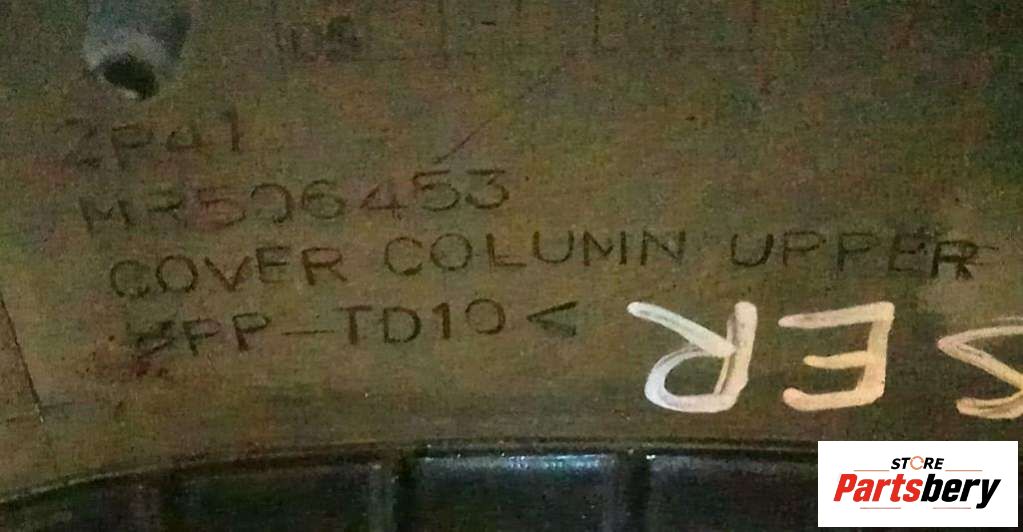 ZP41
MR506453
COVER COLUMN UPPER
>PP-TD10<
STORE
Partsbery